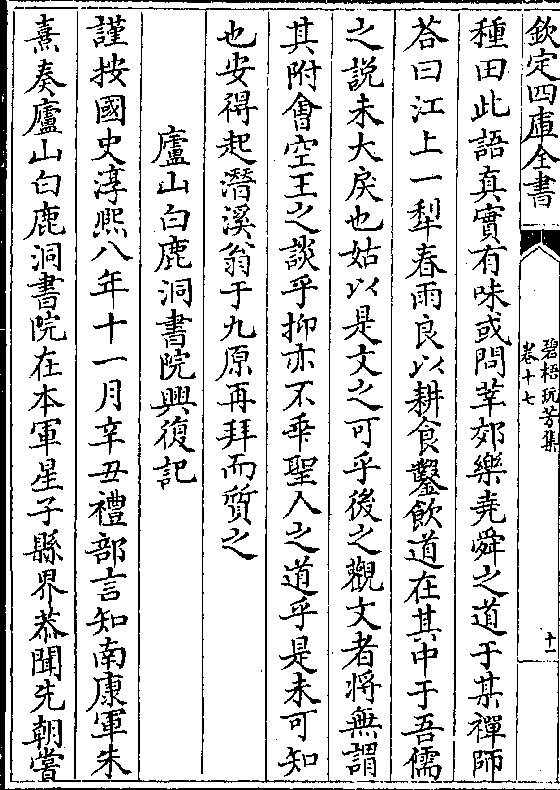 欽定四庫全書
碧梧玩芳集
卷十七
十一
種田此語真實有味或問莘郊樂堯舜之道于某禪師
荅曰江上一犁春雨良以耕食鑿飲道在其中于吾儒
之說未大戾也姑以是文之可乎後之觀文者將無謂
其附會空王之談乎抑亦不乖聖人之道乎是未可知
也安得起潛溪翁于九原再拜而質之
廬山白鹿洞書院興復記
謹按國史淳熙八年十一月辛丑禮部言知南康軍朱
熹奏廬山白鹿洞書院在本軍星子縣界恭聞先朝嘗